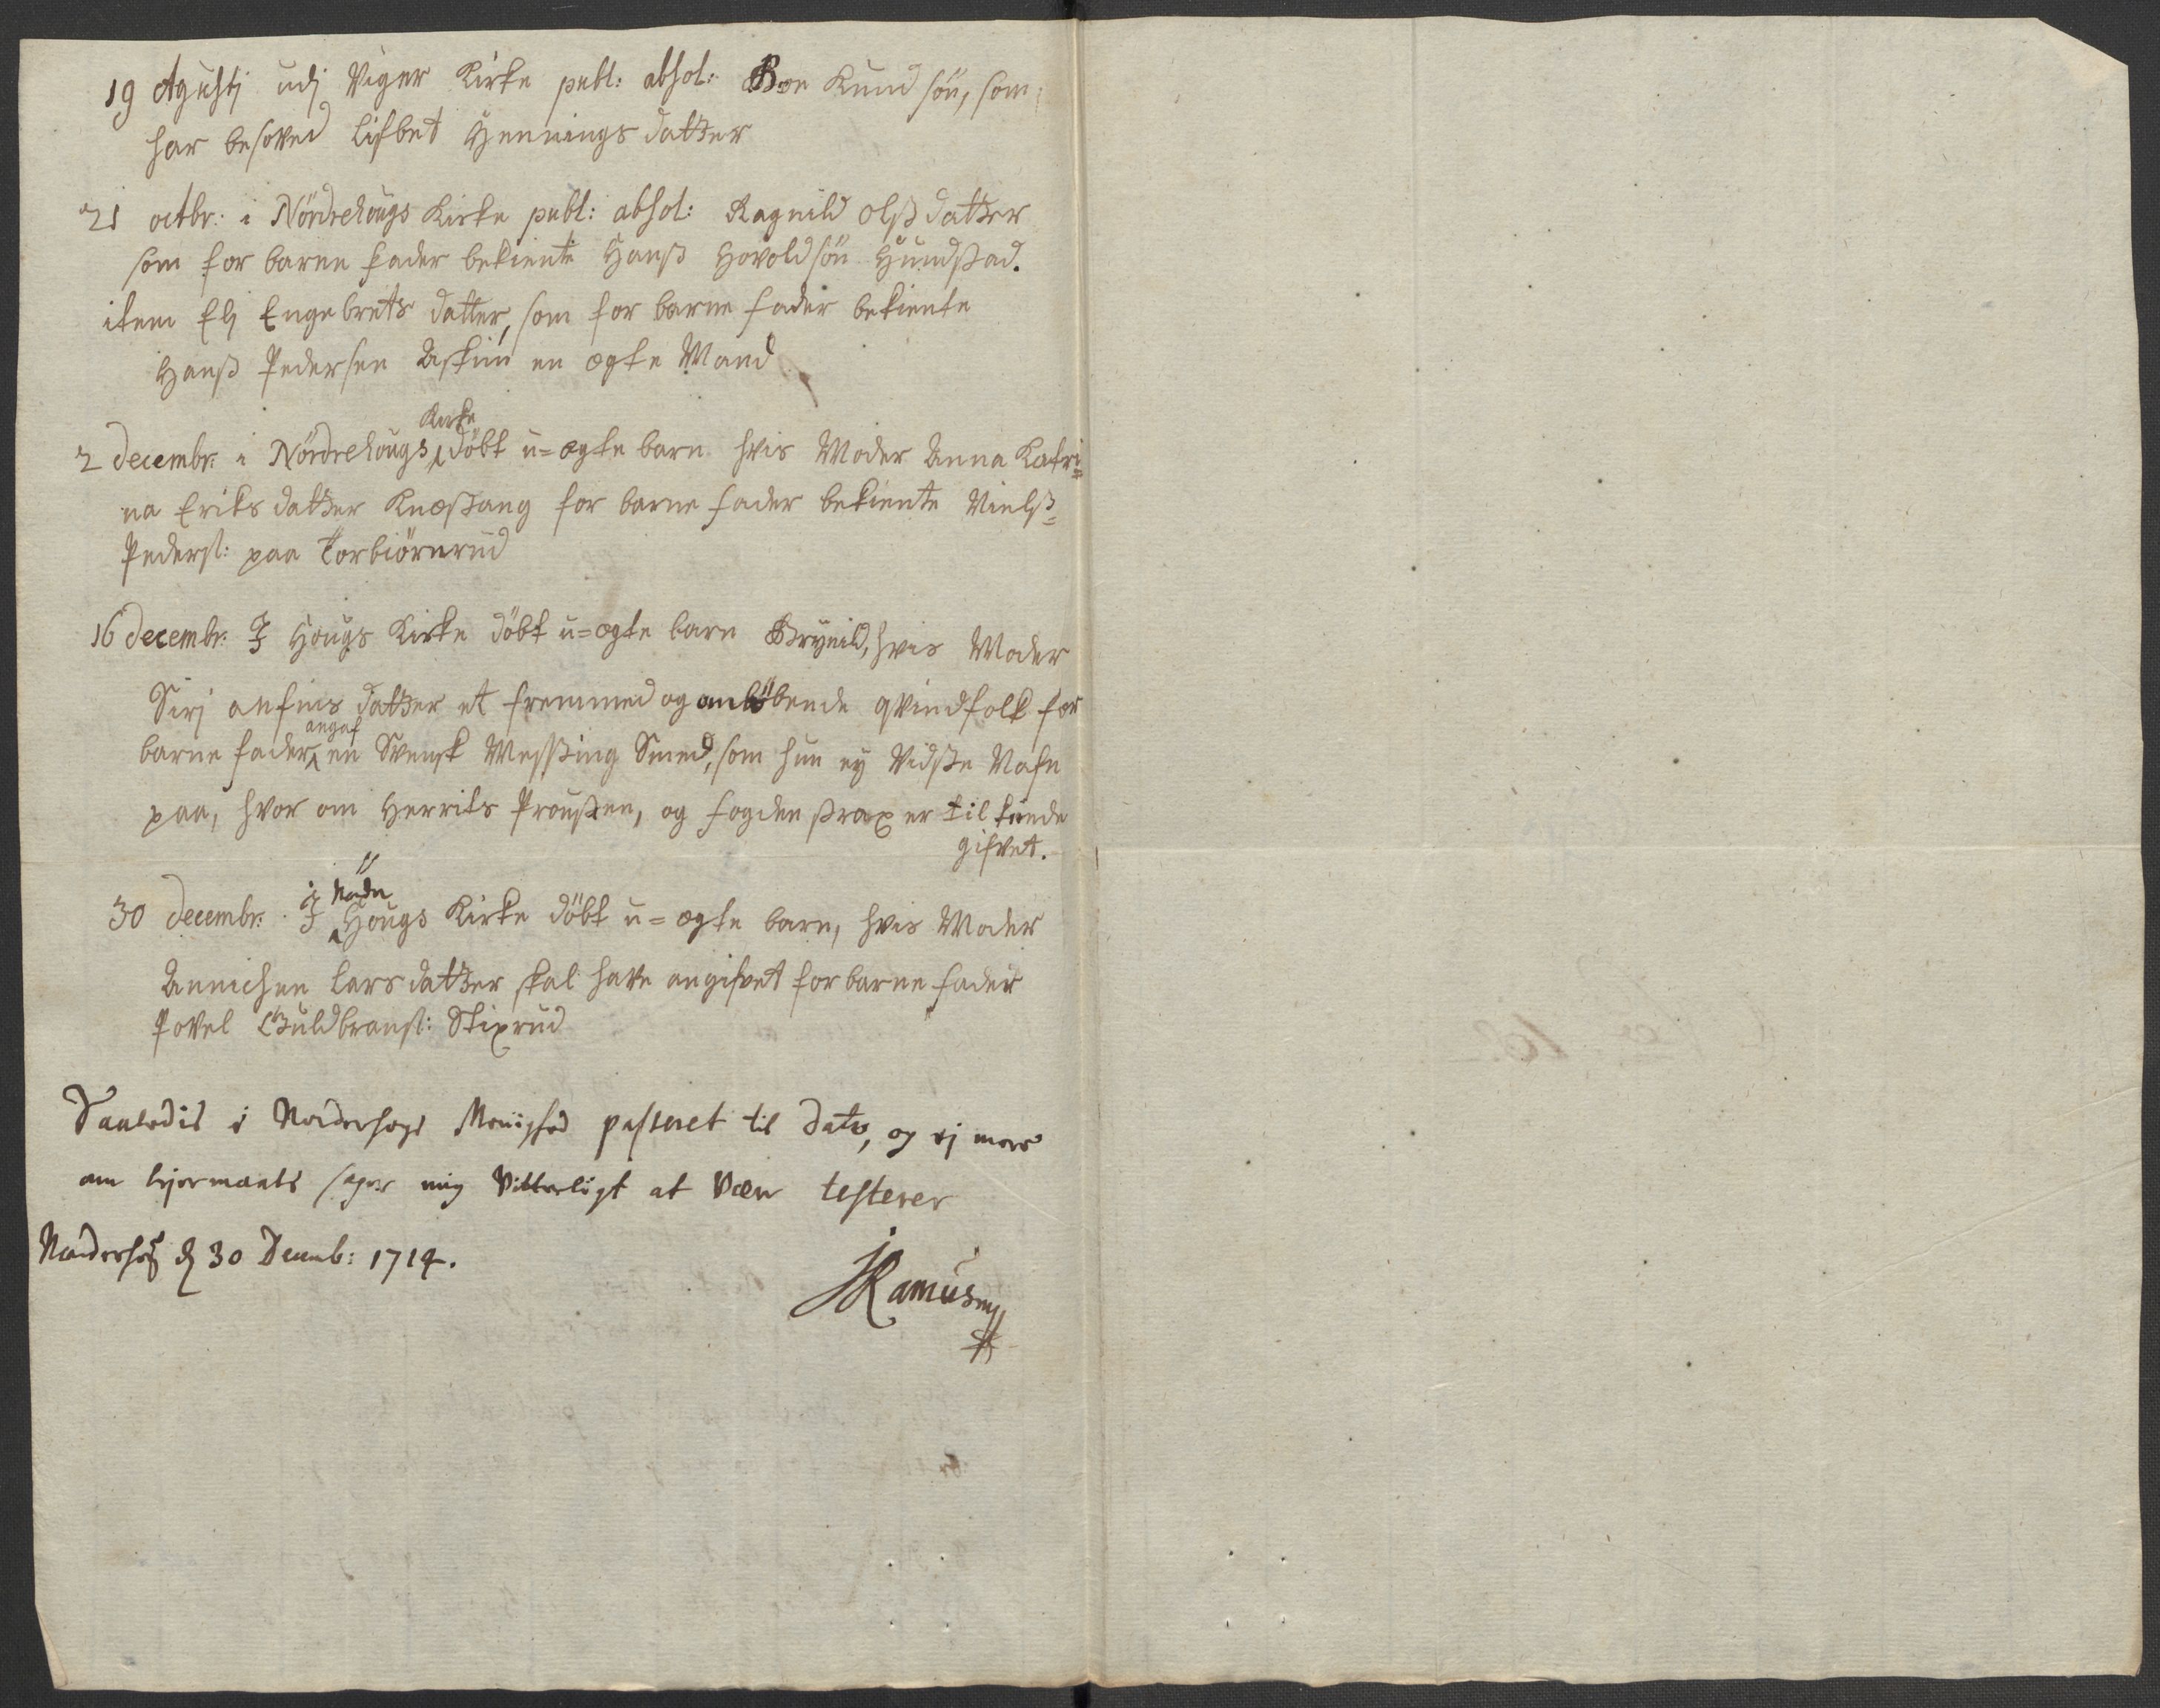 19 Agusti udj Viger Kirke publ: absol: Boe Knud søn, som
har besoved Lisbet Hennings datter
21 octbr: i Nördrehougs Kirke publ: absol: Ragnild Olsdatter
som for barne fader bekiente Hans Hovoldsön Hundstad.
item Elj Engebrets datter, som for barne fader bekiente
Hans Pedersen Askim en ægte Mand
Kirke
2 decembr: i Nördrehougs döbt u=ægte barn hvis Moder Anna Katri=
na Eriks datter Knæstang for barne fader bekiente Niels
Peders: paa Torbiörnrud
16 decembr: I Hougs Kirke döbt u=ægte barn Brynild, hvis Moder
Sirj anfins datter et fremmed og omlöbende qvindfolk for
angaf
barne fader en Svensk Messing Smed, som hun ey Vidste Nafn
paa, hvor om Herrits Prousten, og fogden strax er til kiende
gifvet.
Nörder
30 decembr: I Hougs Kirke döbt u=ægte barn, hvis Moder
Annichen Lars datter skal have angifvet for barne fader
Povel Guldbrans: Stixrud
Saaledis i Norderhogs Menighed passeret til dato, og ej mere
om lejermaals sager mig Vitterligt at Være testerer
Norderhog d 30 Decemb: 1714.
JRamus mp